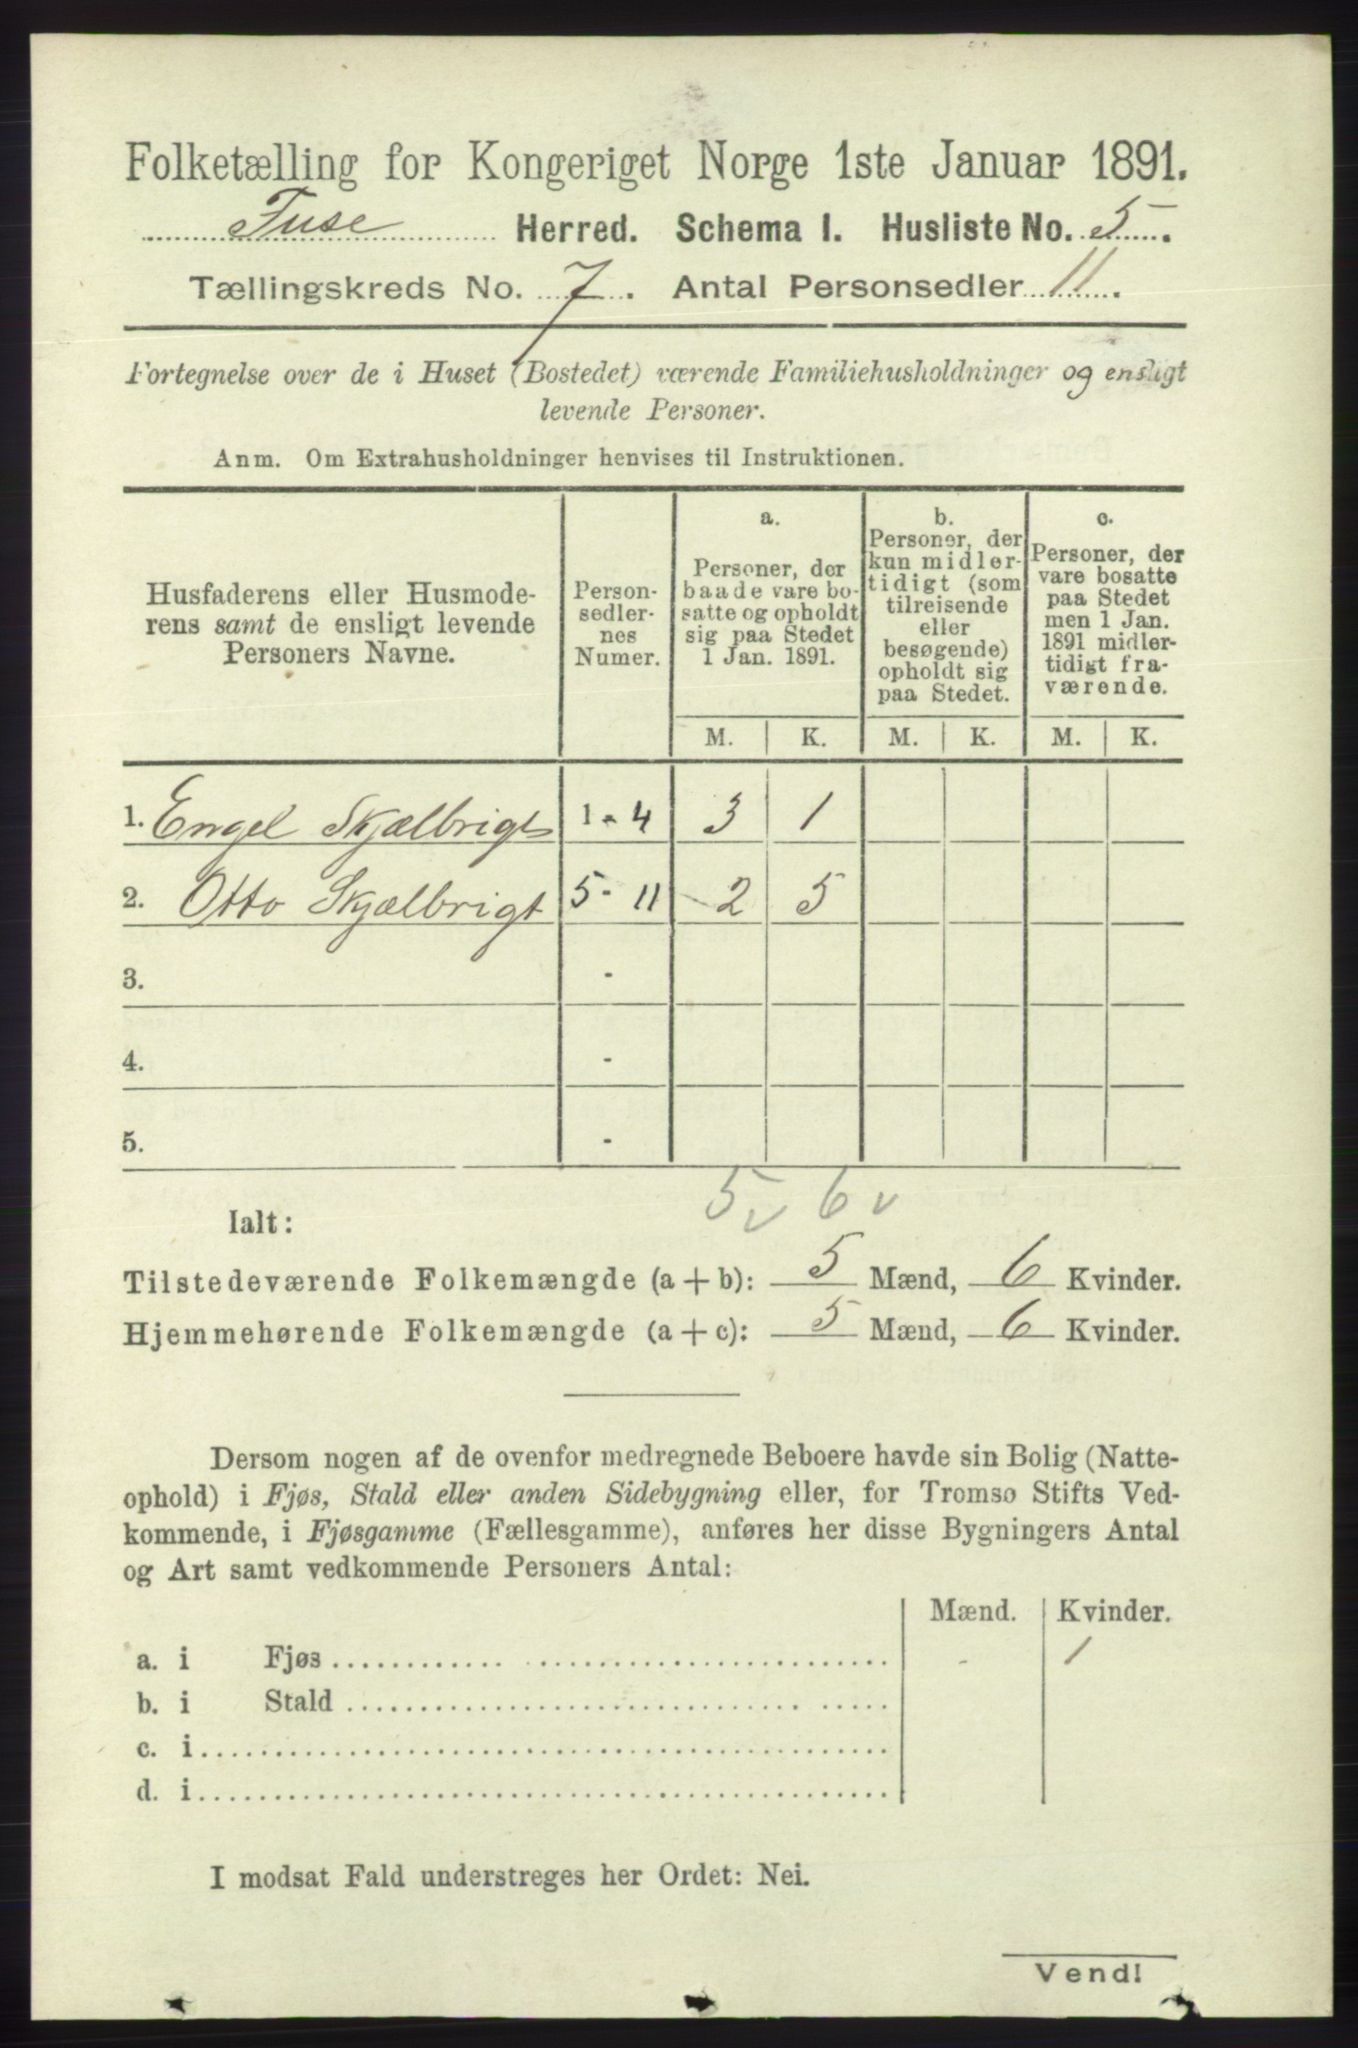 Folketælling for Kongeriget Norge 1ste Januar 1891.
Fuse Herred. Schema I. Husliste No. 5.
Tællingskreds No. 7. Antal Personsedler 11.
Fortegnelse over de i Huset (Bostedet) værende Familiehusholdninger og ensligt
levende Personer.
Anm. Om Extrahusholdninger henvises til Instruktionen.
Husfaderens eller Husmode-
rens samt de ensligt levende
Personers Navne.
Person-
sedler-
nes
Numer.
a.
Personer, der
baade vare bo-
satte og opholdt
sig paa Stedet
1 Jan. 1891.
b.
Personer, der
kun midler-
tidigt (som
tilreisende
eller
besøgende)
opholdt sig
paa Stedet.
c.
Personer, der
vare bosatte
paa Stedet
men 1 Jan.
1891 midler-
tidigt fra-
værende.
M. K. M. K. M. K.
1. Engel Skjælbrigt 1 - 4 3 1
2. Otto Skjælbrigt 5 - 11 2 5
3. -
4. -
5. -
5 v 6 v
Ialt:
Tilstedeværende Folkemængde (a + b): 5 Mænd, 6 Kvinder.
Hjemmehørende Folkemængde (a + c): 5 Mænd, 6 Kvinder.
Dersom nogen af de ovenfor medregnede Beboere havde sin Bolig (Natte-
ophold) i Fjøs, Stald eller anden Sidebygning eller, for Tromsø Stifts Ved-
kommende, i Fjøsgamme (Fællesgamme), anføres her disse Bygningers Antal
og Art samt vedkommende Personers Antal:
Mænd. Kvinder.
a. i Fjøs - 1
b. i Stald
c. i
d. i
I modsat Fald understreges her Ordet: Nei.
Vend!